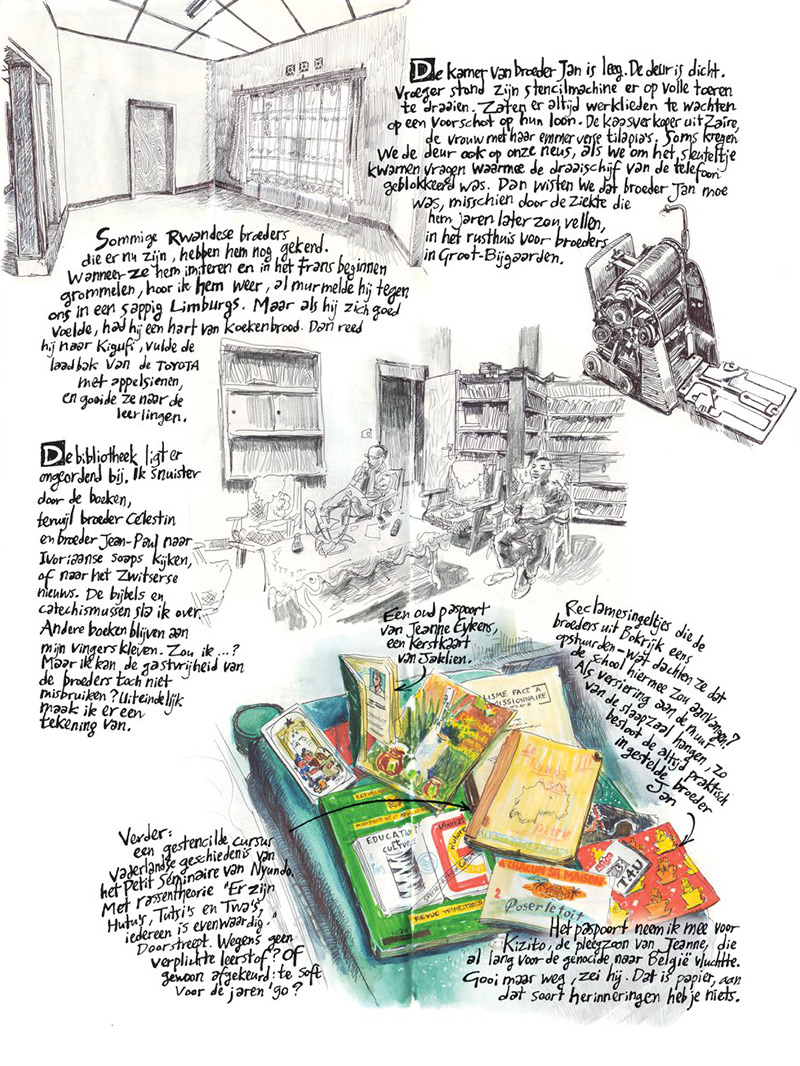 De kamer van broeder Jan is leeg. De deur is dicht.
Vroeger stond zijn stencilmachine er op volle toeren
te draaien. Zaten er altijd werklieden te wachten
op een voorschot op hun loon. De kaasverkoper uit Zaïre,
de vrouw met haar emmer verse tilapia's. Soms kregen
we de deur ook op onze neus, als we om het sleuteltje
kwamen vragen waarmee de draaischijf van de telefoon
geblokkeerd was. Dan wisten we dat broeder Jan moe
was, misschien door de ziekte die
hem jaren later zou vellen,
in het rusthuis voor broeders
in Groot-Bijgaarden.
Sommige Rwandese broeders
die er nu zijn, hebben hem nog gekend.
Wanneer ze hem imiteren en in het Frans beginnen
grommelen, hoor ik hem weer, al murmelde hij tegen
ons in een sappig Limburgs. Maar als hij zich goed
voelde, had hij een hart van koekenbrood. Dan reed
hij naar Kigufi, vulde de
laadbak van de TOYOTA
met appelsienen,
en gooide ze naar de
leerlingen.
De bibliotheek ligt er
ongeordend bij. Ik snuister
door de boeken,
terwijl broeder Célestin
en broeder Jean-Paul naar
Ivoriaanse soaps kijken,
of naar het Zwitserse
nieuws. De bijbels en
catechismussen sla ik over.
Andere boeken blijven aan
mijn vingers kleven. Zou ik...?
Maar ik kan de gastvrijheid van
de broeders toch niet
misbruiken? Uiteindelijk
maak ik er een
tekening van.
Een oud paspoort
van Jeanne Eykens,
een kerstkaart
van Jaklien.
Reclamesingeltjes die de
broeders uit Bokrijk eens
opstuurden - wat dachten ze dat
de school hiermee zou aanvangen?
Als versiering aan de muur
van de slaapzaal hangen, zo
besloot de altijd praktisch
ingestelde broeder
Jan
LISME FACE A
MISSIONNAIRE
EDUCATION
CULTURE
REVUE TRIMESTRIELLE
A CHACUN SA MAISON
2
Poser le toit
T4U
Verder:
een gestencilde cursus
vaderlandse geschiedenis van
het Petit Séminaire van Nyundo.
Met rassentheorie "Er zijn
Hutu's, Tutsi's en Twa's,
iedereen is evenwaardig."
Doorstreept. Wegens geen
verplichte leerstof? Of
gewoon afgekeurd: te soft
voor de jaren '90?
Het paspoort neem ik mee voor
Kizito, de pleegzoon van Jeanne, die
al lang voor de genocide naar België vluchtte.
Gooi maar weg, zei hij. Dat is papier, aan
dat soort herinneringen heb je niets.